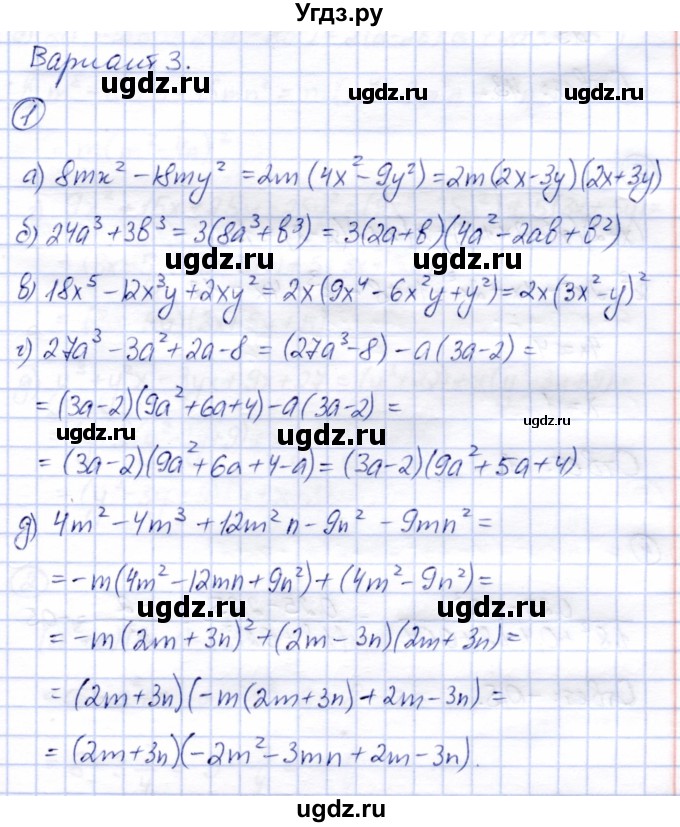 Угдз.ру
Вариант 3.
ugdz.ru
ugdz.ru
ugdz.ru
1
а) 8mx² - 18my² = 2m(4x² - 9y²) = 2m(2x-3y)(2x+3y)
б) 24a³ + 3в³ = 3(8a³+в³) = 3(2a+в)(4a² - 2aв + в²)
ugdz.ru
ugdz.ru
в) 18x⁵ - 12x³y + 2xy² = 2x(9x⁴ - 6x²y + y²) = 2x(3x² - y)²
г) 27a³ - 3a² + 2a - 8 = (27a³ - 8) - a(3a-2) =
= (3a-2)(9a² + 6a + 4) - a(3a-2) =
ugdz.ru
ugdz.ru
ugdz.ru
= (3a-2)(9a² + 6a + 4 - a) = (3a-2)(9a² + 5a + 4)
д) 4m² - 4m³ + 12m²n - 9n² - 9mn² =
= -m(4m² - 12mn + 9n²) + (4m² - 9n²) =
ugdz.ru
ugdz.ru
= -m(2m + 3n)² + (2m - 3n)(2m + 3n) =
= (2m+3n)(-m(2m+3n) + 2m - 3n) =
ugdz.ru
ugdz.ru
= (2m+3n)(-2m² - 3mn + 2m - 3n).
ugdz.ru